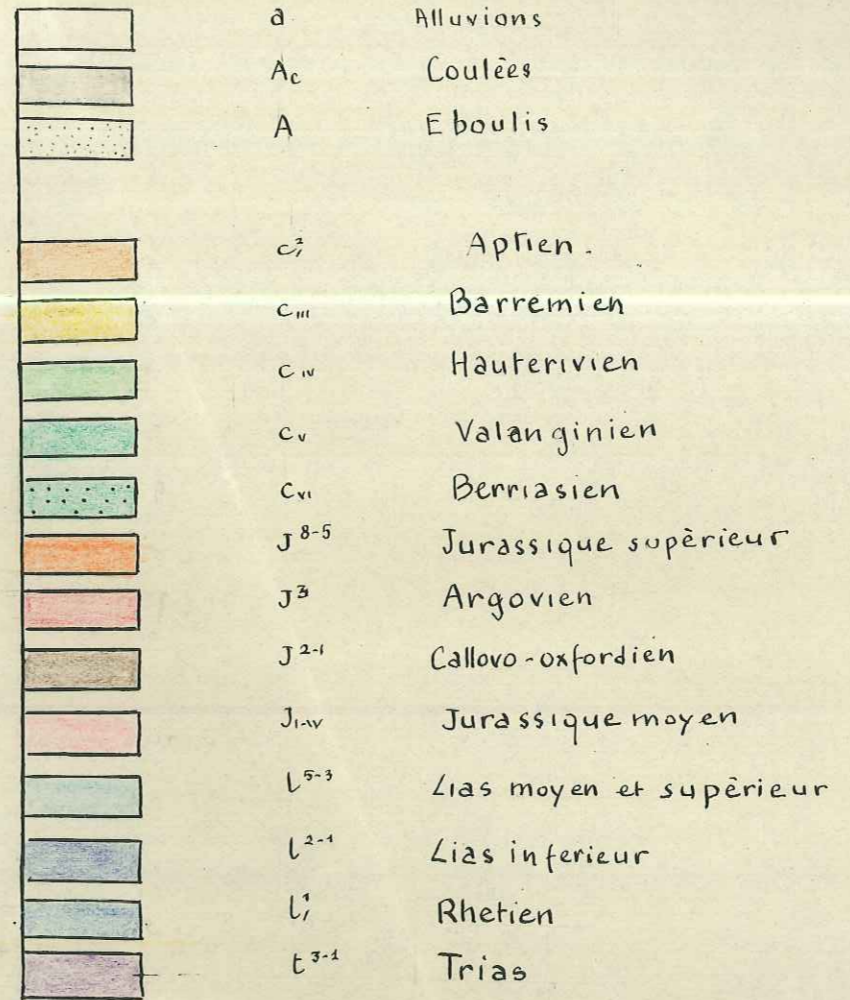 a Alluvions
Ac Coulèes
A Eboulis
c², Aptien.
cIII Barremien
cIV Hauterivien
cV Valanginien
cVI Berriasien
J⁸⁻⁵ Jurassique supèrieur
J³ Argovien
J²⁻¹ Callovo-oxfordien
JI-IV Jurassique moyen
l⁵⁻³ Lias moyen et supèrieur
l²⁻¹ Lias inferieur
l¹, Rhetien
t³⁻¹ Trias